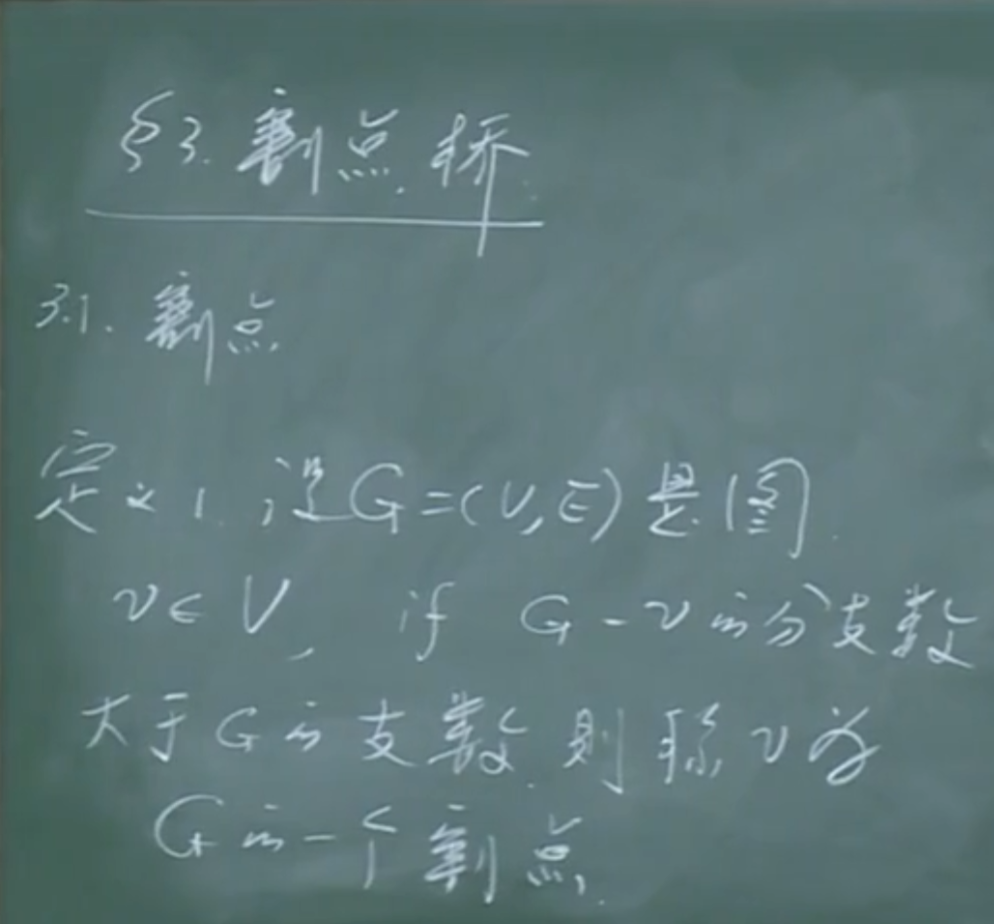 §3. 割点 桥
3.1. 割点
定义1 设G=(V,E)是图.
v∈V, if G-v的分支数
大于G的支数.则称v为
G的一个割点.